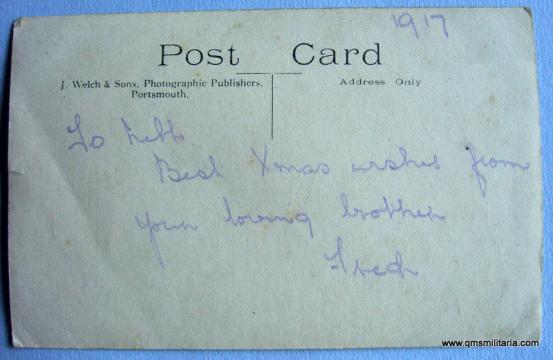 1917
Post Card
J. Welch & Sons, Photographic Publishers,
Portsmouth.
Address Only
To Nell
Best Xmas wishes from
your loving brother
Fred
www.qmsmilitaria.com